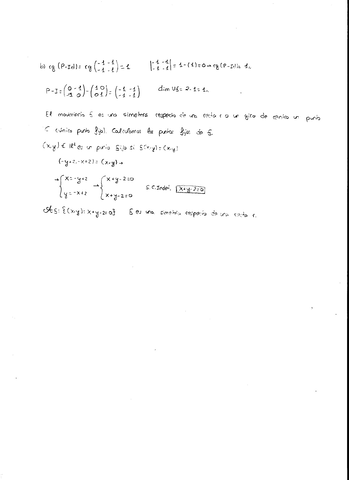 b) rg (P-Id) = rg (-1 -1 / -1 -1) = 1 |-1 -1 / -1 -1| = 1-(1) = 0 ⇒ rg (P-Id) = 1
P-I = (0 -1 / -1 0) - (1 0 / 0 1) = (-1 -1 / -1 -1) dim = 2-1 = 1
El movimiento f es una simetría respecto de una recta r o un giro de centro un punto
C (único punto fijo). Calculamos los puntos fijos de f.
(x,y) ∈ R² es un punto fijo si f(x,y) = (x,y)
(-y+2, -x+2) = (x,y) →
→ { x = -y+2 → { x+y-2=0
y = -x+2 x+y-2=0 S.C. Indet. x+y-2=0
f: {(x,y): x+y-2=0} f es una simetría respecto de una recta r.